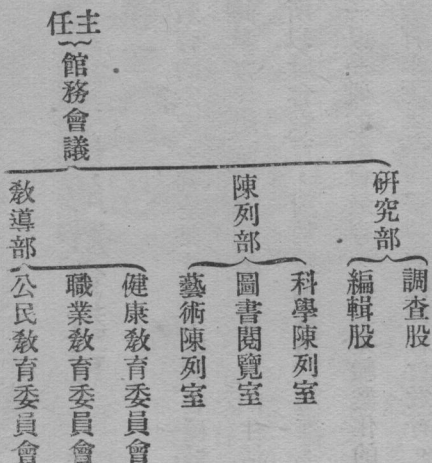 主任
館務會議
研究部
調查股
編輯股
陳列部
科學陳列室
圖書閱覽室
藝術陳列室
教導部
健康教育委員會
職業教育委員會
公民教育委員會